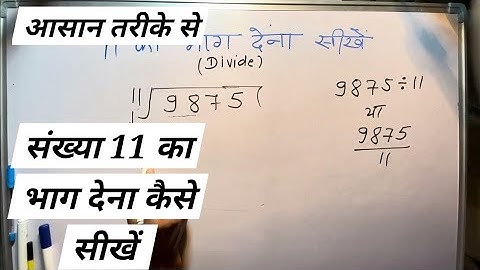 आसान तरीके से
11 का भाग देंना सीखें
(Divide)
11√9875(
9875÷11
या
9875
11
संख्या 11 का
भाग देना कैसे
सीखें